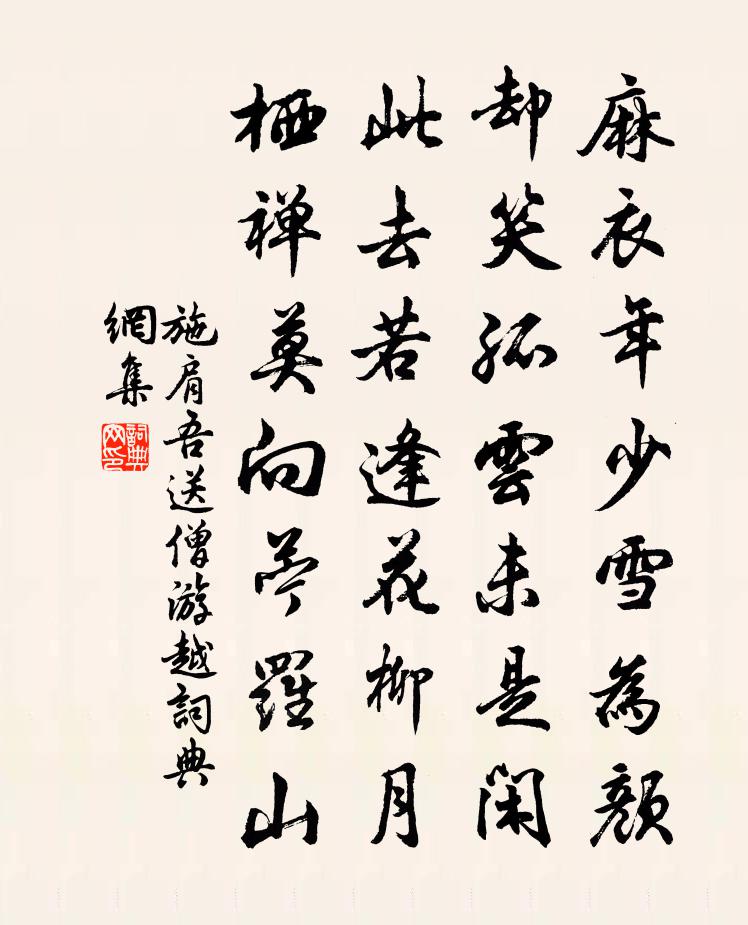 麻衣年少雪為顏
却笑孤雲未是閑
此去若逢花柳月
栖禅莫向苧羅山
施肩吾送僧游越詞典
網集
詞典
网印